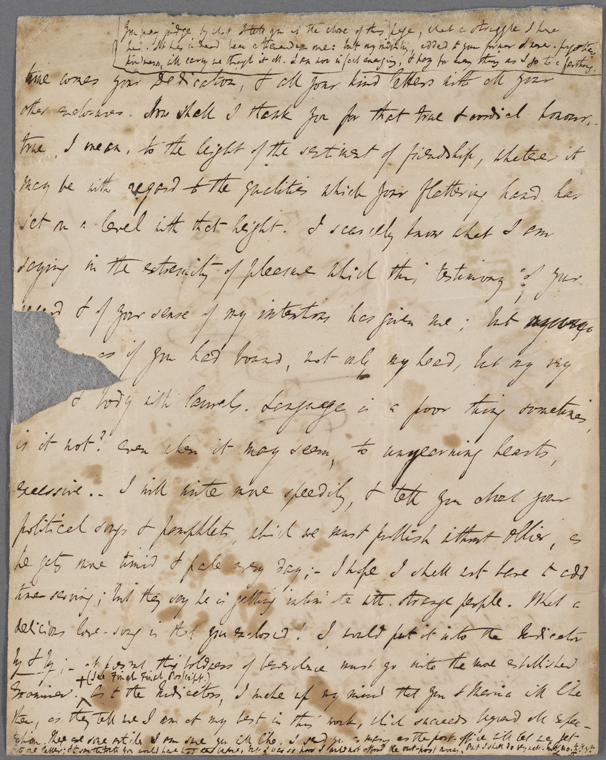 You may judge by what I tell you in the close of this page, what a struggle I have
time comes your Dedication, & all your kind letters with all your
other enclosures. How shall I thank you for that true & cordial honour,
true, I mean, to the height of the sentiment of friendship, whatever it
may be with regard to the qualities which your flattering hand has
set on a level with that height. I scarcely know what I am
saying in the extremity of pleasure which this testimony of your
regard & of your sense of my intentions has given me; but
as if you had bound, not only my head, but my very
& body with laurels. Language is a poor thing sometimes,
is it not? even when it may seem, to unyearning hearts,
excessive. – I will write more speedily, & tell you about your
political songs & pamphlets, which we must publish without Ollier, as
he gets more timid & pale every day; – I hope I shall not have to add
time-serving; but they say he is getting intimate with strange people. What a
delicious love-song is that you enclosed! I would put it into the Indicator
but this boldness of benevolence must go into the more established
Examiner. + (See Final Final Postscript) As to the Indicators, I make up my mind that you & Marina will like
them, as they tell me I am at my best in this work, which succeeds beyond all expec-
tation. There are some articles I am sure you will like. I send you as many as the post office will let me